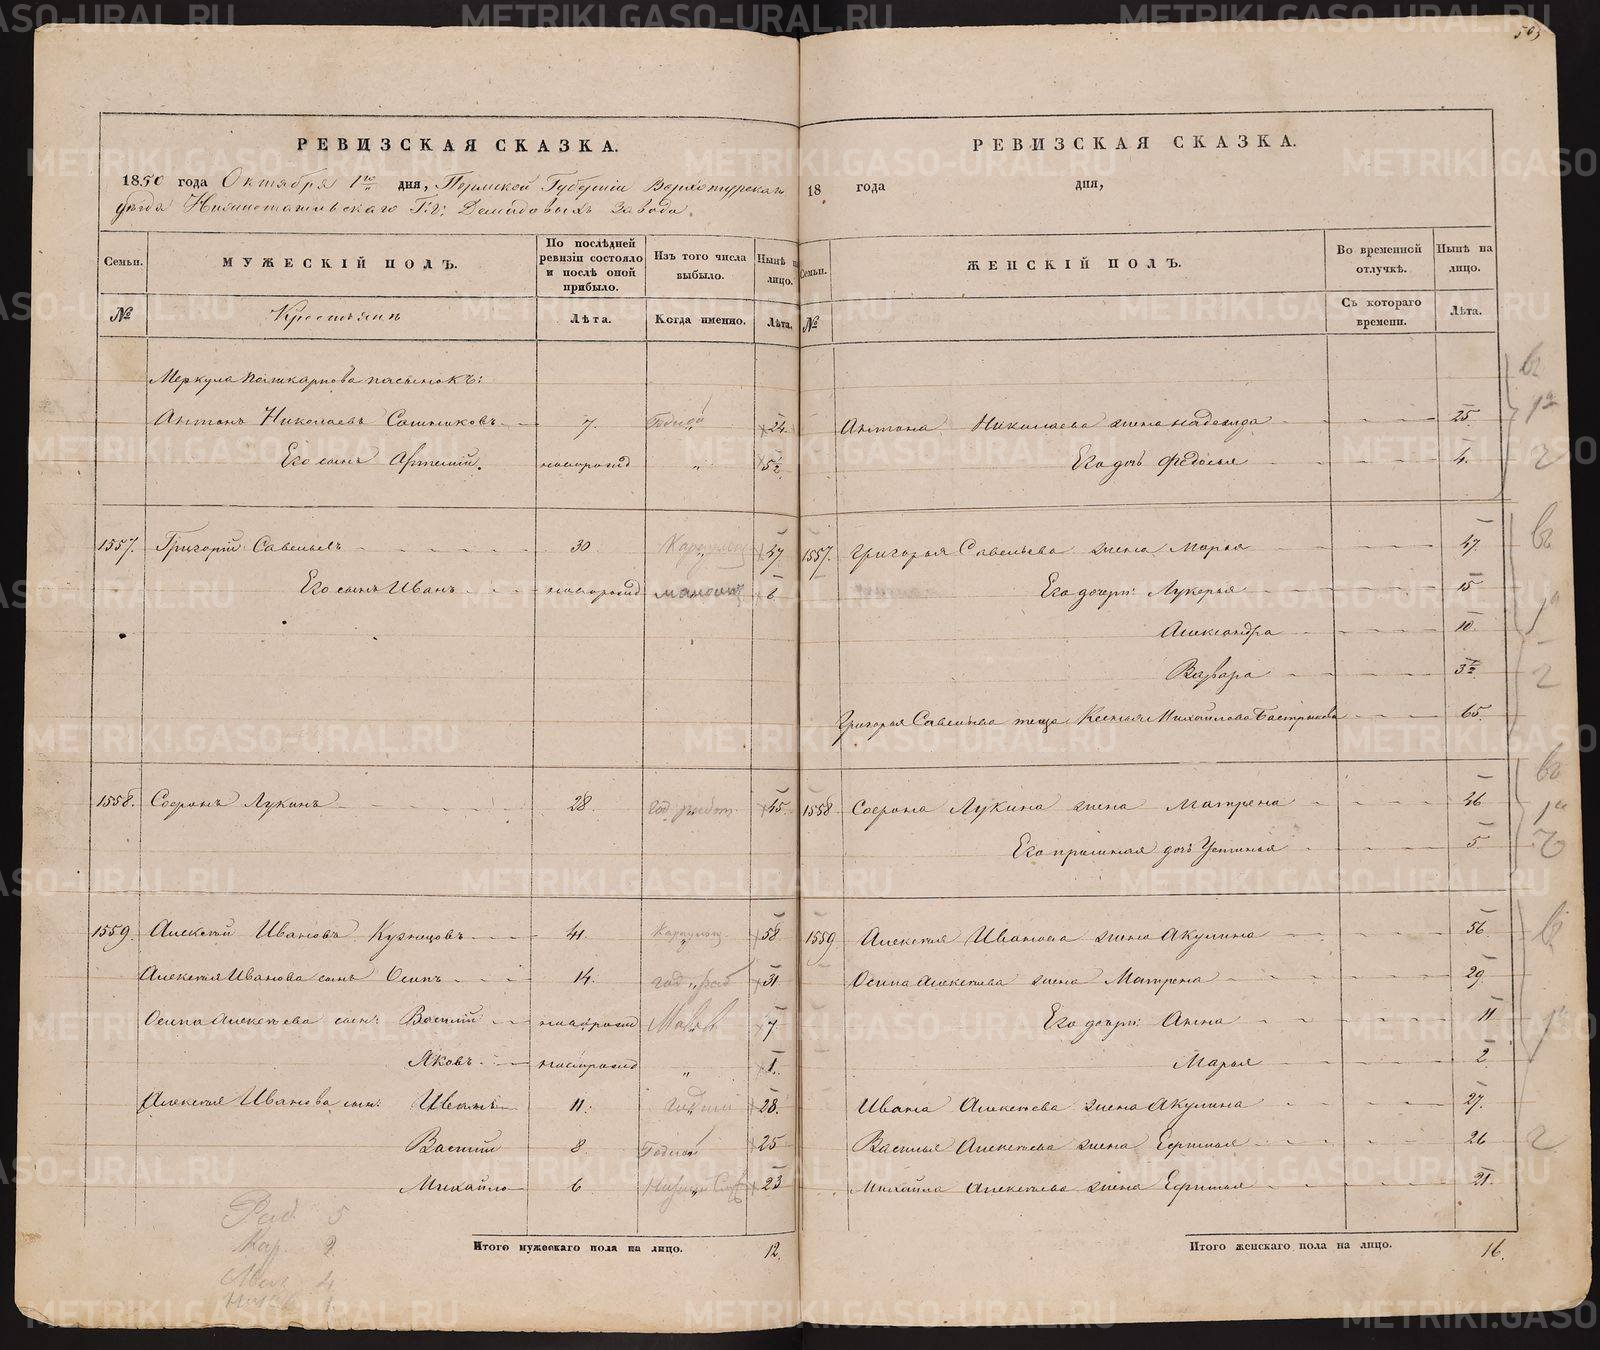 505
РЕВИЗСКАЯ СКАЗКА.
1850 года Октября 1го дня, Пермской Губерніи Верхотурскаго
уѣзда Нижнетагильскаго Г.г. Демидовыхъ завода.
Семьи.
МУЖЕСКІЙ ПОЛЪ.
По послѣдней ревизіи состояло и послѣ оной прибыло.
Изъ того числа выбыло.
Нынѣ на лицо.
№
Крестьянъ
Лѣта.
Когда именно.
Лѣта.
Меркула пасынокъ:
Антонъ Николаевъ Сошниковъ 7. Годной 24
Его сынъ Артемій. новорожд „ 5½
1557. Григорій Савельевъ 30 47
Его сынъ Иванъ новорожд малолѣт 6
1558. Софронъ Лукинъ 28. год работ 45
1559. Алексѣй Ивановъ Кузнецовъ 41. 58
Алексѣя Иванова сынъ Осипъ 14. год раб 31
Осипа Алексѣева сын: Василій новорожд Малол 7
Яковъ новорожд „ 1.
Алексѣя Иванова сын: Иванъ 11. годный 28.
Василій 8. Годной 25
Михайло 6 23
Итого мужескаго пола на лицо. 12.
Раб 5
Кар 2
Мал 4
1
РЕВИЗСКАЯ СКАЗКА.
18 года дня,
Семьи.
ЖЕНСКІЙ ПОЛЪ.
Во временной отлучкѣ.
Нынѣ на лицо.
№
Съ котораго времени.
Лѣта.
Антона Николаева жена Надежда 25
Его дочь Федосья 4.
1557. Григорья Савельева жена Марья 47
Его дочери: Лукерья 15
Александра 10
Варвара 3½
Григорья Савельева теща Ксенья Михайлова Бастрыкова 65
1558 Софрона Лукина жена Матрена 46
Его пріемная дочь Устинья 5
1559 Алексѣя Иванова жена Акулина 56
Осипа Алексѣева жена Матрена 29
Его дочери: Анна 11
Марья 2
Ивана Алексѣева жена Акулина 27.
Василья Алексѣева жена Ефимья 26
Михайла Алексѣева жена Ефимья 21.
Итого женскаго пола на лицо. 16.
METRIKI.GASO-URAL.RU